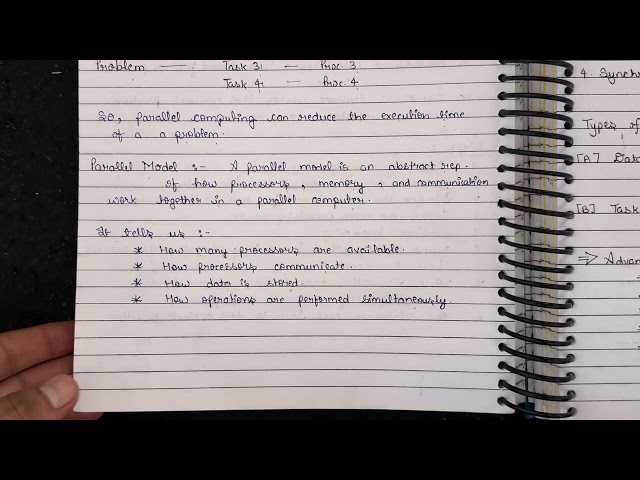 Problem — Task 3 — Proc. 3
Task 4 — Proc. 4
So, parallel computing can reduce the execution time
of a a problem.
Parallel Model :- A parallel model is an abstract rep.
of how processors, memory, and communication
work together in a parallel computer.
It tells us :-
* How many processors are available.
* How processors communicate.
* How data is stored.
* How operations are performed simultaneously.
4. Synchr
Types of
[A] Data
[B] Task
⇒ Advan